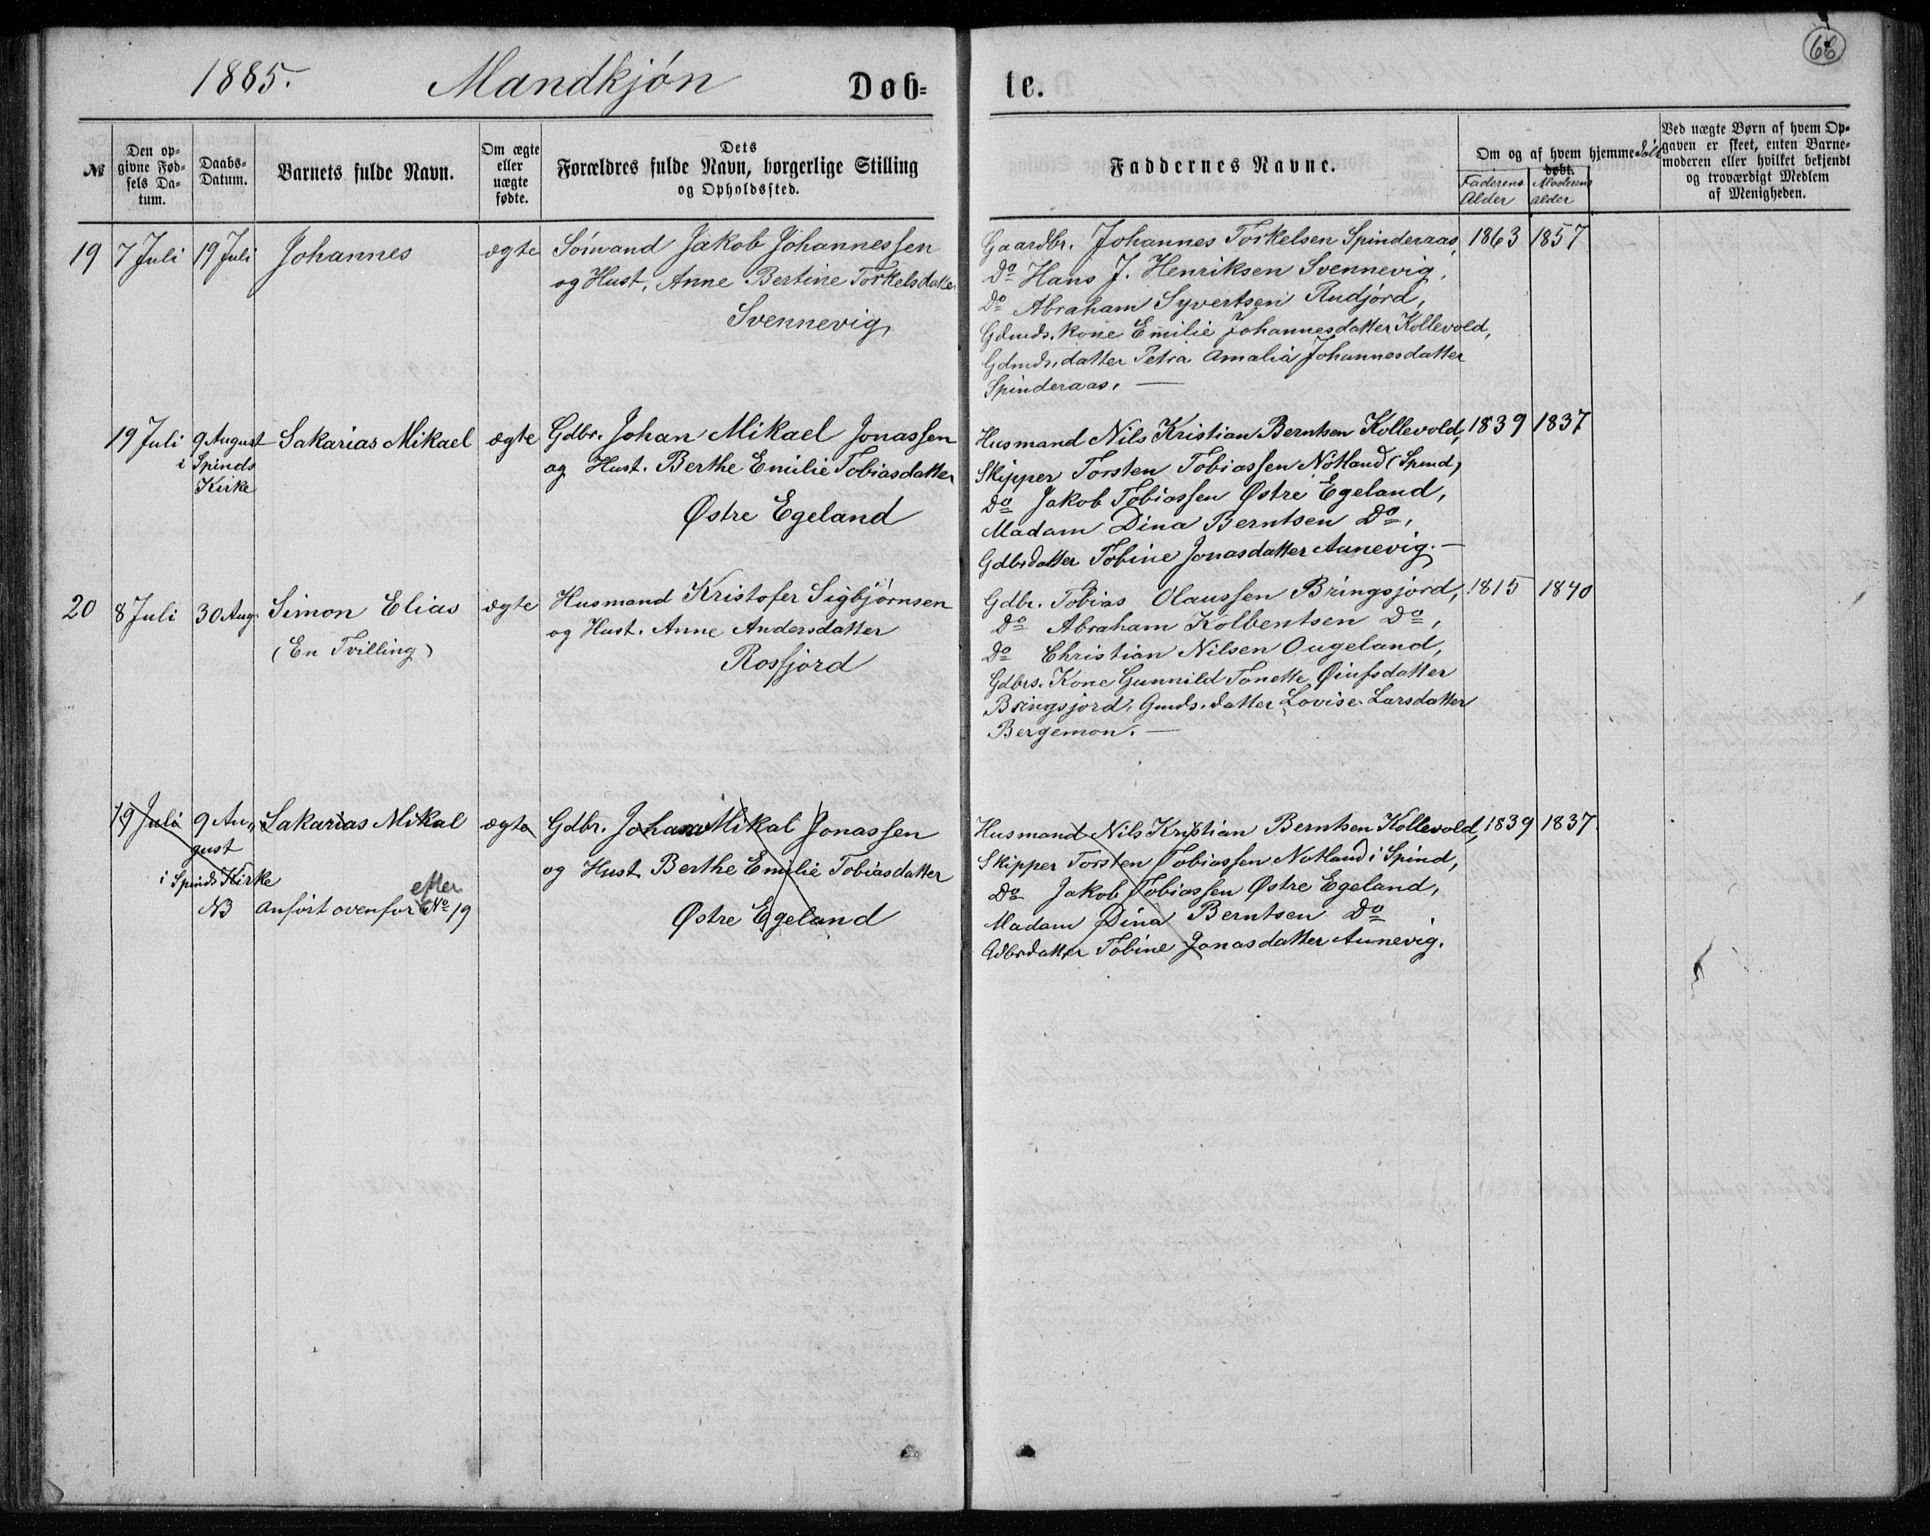 66
1885. Mandkjøn Døb- te.
№
Den op-
givne Fød-
sels Da-
tum.
Daabs-
Datum.
Barnets fulde Navn.
Om ægte
eller
nægte
fødte.
Dets
Forældres fulde Navn, borgerlige Stilling
og Opholdssted.
Faddernes Navne.
Om og af hvem hjemme
døbt.
Faderens
Alder
Moderens
alder
Ved nægte Børn af hvem Op-
gaven er skeet, enten Barne-
moderen eller hvilket bekjendt
og troværdigt Medlem
af Menigheden.
19 7 Juli 19 Juli Johannes ægte
Sømand Jakob Johannessen
og Hust. Anne Bertine Torkelsdatter
Svennevig
Gaardbr. Johannes Torkelsen Spinderaas, 1863 1857
Do Hans J. Henriksen Svennevig,
Do Abraham Syvertsen Rudjord,
Gdmds. Kone Emilie Johannesdatter Kollevold,
Gdmds. datter Petra Amalia Johannesdatter
Spinderaas. —
19 Juli 9 August Sakarias Mikael ægte
i Spinds
Kirke
Gdbr. Johan Mikael Jonassen
og Hust. Berthe Emilie Tobiasdatter
Østre Egeland
Husmand Nils Kristian Berntsen Kollevold, 1839 1837
Skipper Torsten Tobiassen Notland (Spind)
Do Jakob Tobiassen Østre Egeland,
Madam Dina Berntsen Do,
Gdbrdatter Tobine Jonasdatter Aunevig. —
20 8 Juli 30 Aug. Simon Elias ægte
(En Tvilling)
Husmand Kristofer Sigbjørnsen
og Hust. Anne Andersdatter
Rosfjord
Gdbr. Tobias Olaussen Bringsjord, 1815 1840
Do Abraham Kolbentsen Do,
Do Christian Nilsen Ougeland,
Gdbrs. Kone Gunnild Tonette
Bringsjord, Gmds. datter Lovise Larsdatter
Bergemon. —
19 Juli 9 Au- Sakarias Mikal ægte
gust
i Spinds Kirke
NB anført ovenfor efter No 19
Gdbr. Johan Mikal Jonassen
og Hust. Berthe Emilie Tobiasdatter
Østre Egeland
Husmand Nils Kristian Berntsen Kollevold, 1839 1837.
Skipper Torsten Tobiassen Notland i Spind,
Do Jakob Tobiassen Østre Egeland,
Madam Dina Berntsen Do,
Gdbrdatter Tobine Jonasdatter Aunevig.